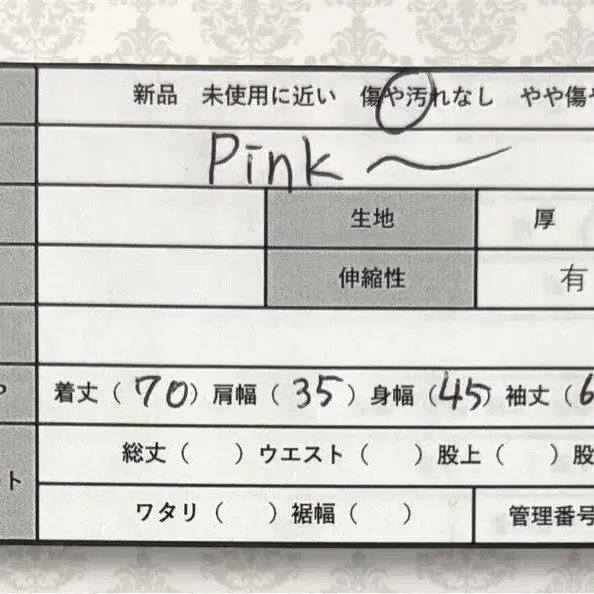 新品 未使用に近い 傷や汚れなし やや傷
Pink
生地 厚
伸縮性 有
着丈（70）肩幅（35）身幅（45）袖丈（6
総丈（ ）ウエスト（ ）股上（ ）股
ト
ワタリ（ ）裾幅（ ） 管理番号